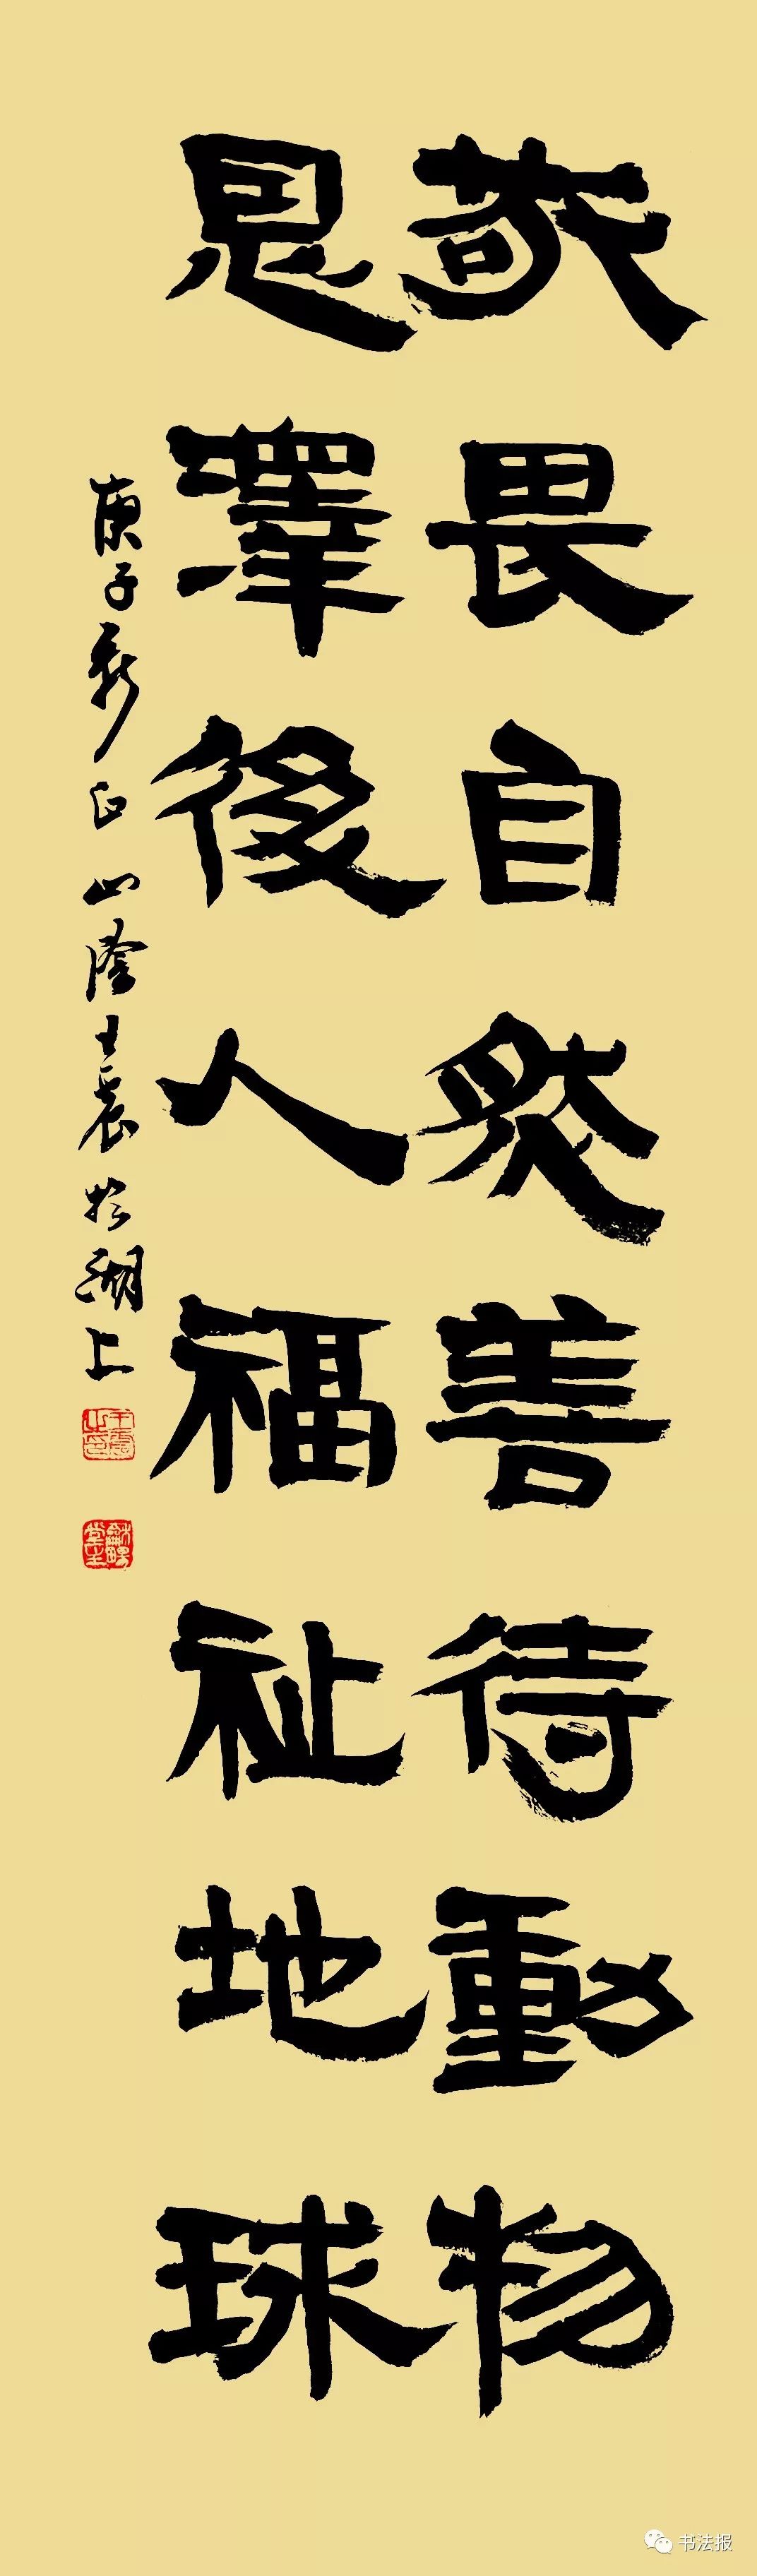 敬畏自然善待動物
恩澤後人福祉地球
庚子新正山陰王宸於湖上
书法报